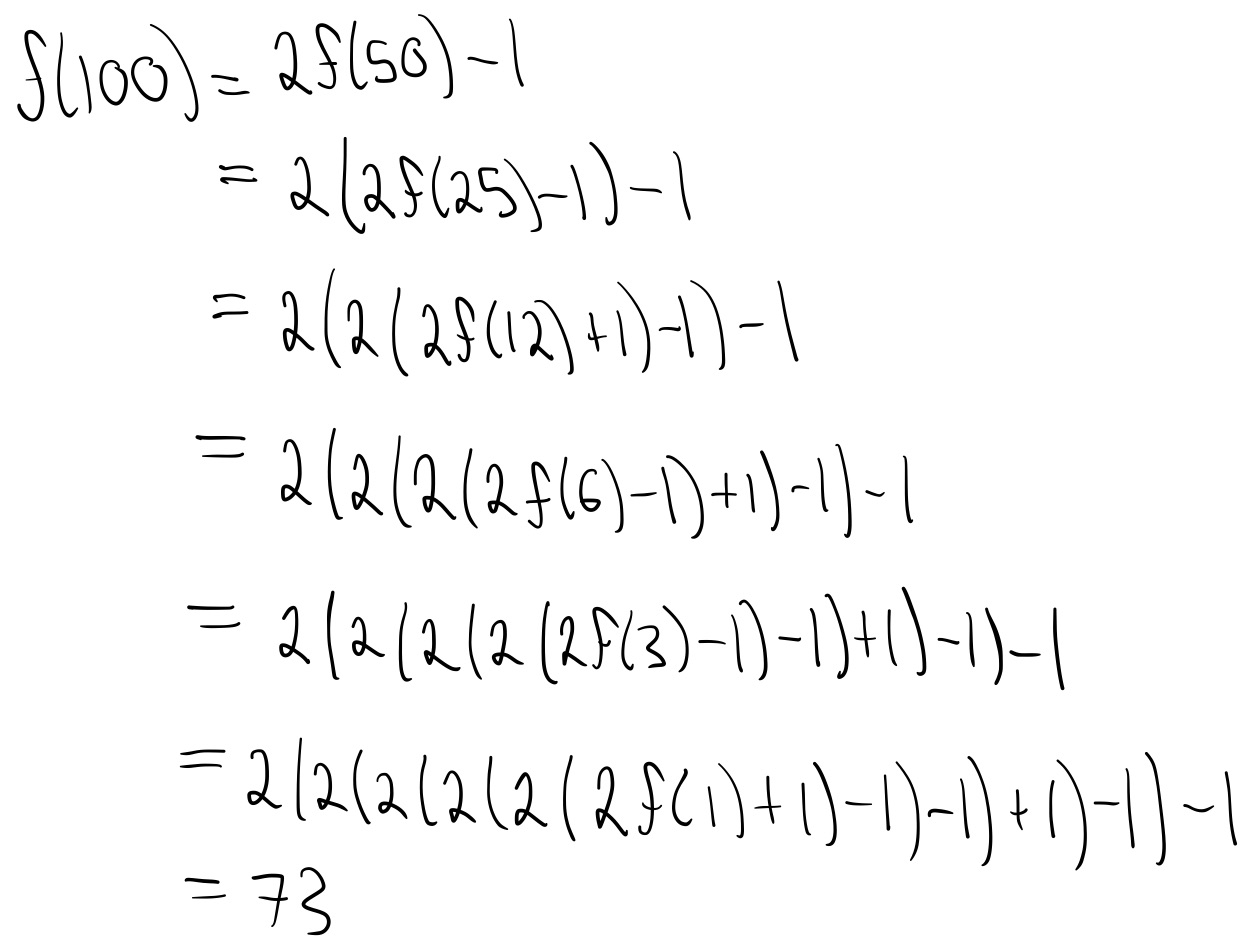 f(100) = 2f(50) - 1
= 2(2f(25) - 1) - 1
= 2(2(2f(12) + 1) - 1) - 1
= 2(2(2(2f(6) - 1) + 1) - 1) - 1
= 2(2(2(2(2f(3) - 1) - 1) + 1) - 1) - 1
= 2(2(2(2(2(2f(1) + 1) - 1) - 1) + 1) - 1) - 1
= 73